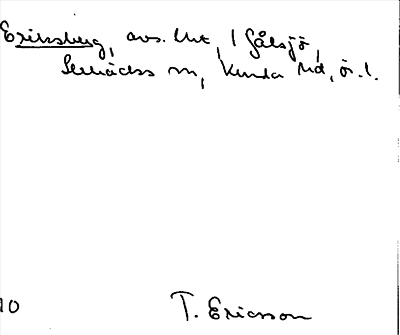 Eriksberg, avs. lht, 1 Gålsjö,
Serkäcks m, Kinda hd, ög. l.
10 T. Ericsson